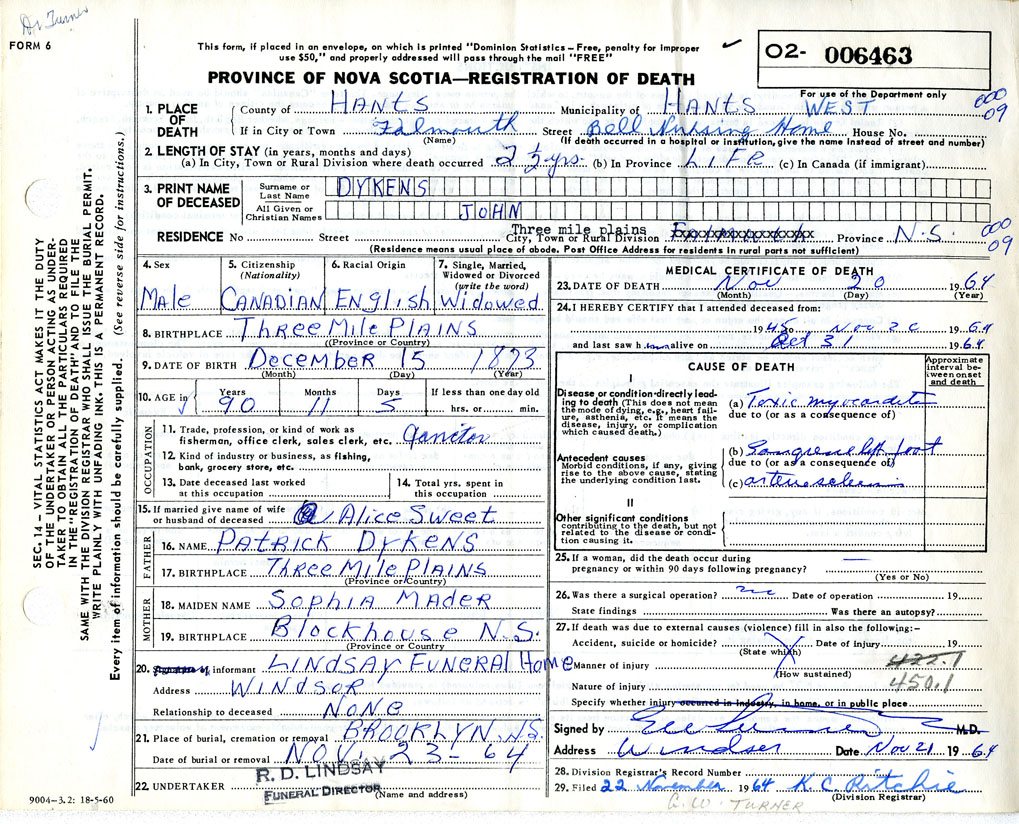 Dr Turner
FORM 6
This form, if placed in an envelope, on which is printed "Dominion Statistics – Free, penalty for improper
use $50," and properly addressed will pass through the mail "FREE"
O2- 006463
PROVINCE OF NOVA SCOTIA—REGISTRATION OF DEATH
For use of the Department only
000
09
1. PLACE OF DEATH
County of HANTS Municipality of HANTS WEST
If in City or Town Falmouth Street Bell Nursing Home House No.
(Name) (If death occurred in a hospital or institution, give the name instead of street and number)
2. LENGTH OF STAY (in years, months and days)
(a) In City, Town or Rural Division where death occurred 2 ½ yrs. (b) In Province LIFE (c) In Canada (if immigrant)
3. PRINT NAME OF DECEASED
Surname or Last Name DYKENS
All Given or Christian Names JOHN
RESIDENCE No Street Three mile plains City, Town or Rural Division Province N.S.
000
09
(Residence means usual place of abode. Post Office Address for residents in rural parts not sufficient)
4. Sex Male
5. Citizenship (Nationality) CANADIAN
6. Racial Origin ENglish
7. Single, Married, Widowed or Divorced (write the word) Widowed
8. BIRTHPLACE Three Mile PLAINS
(Province or Country)
9. DATE OF BIRTH December 15 1873
(Month) (Day) (Year)
10. AGE in Years 90 Months 11 Days 5 If less than one day old hrs. or min.
OCCUPATION
11. Trade, profession, or kind of work as fisherman, office clerk, sales clerk, etc. Janitor
12. Kind of industry or business, as fishing, bank, grocery store, etc.
13. Date deceased last worked at this occupation
14. Total yrs. spent in this occupation
15. If married give name of wife or husband of deceased Alice Sweet
FATHER
16. NAME PATRICK DYKENS
17. BIRTHPLACE Three Mile PLAINS
(Province or Country)
MOTHER
18. MAIDEN NAME SOPHIA MADER
19. BIRTHPLACE Blockhouse N.S.
(Province or Country)
20. informant LINDSAY FUNERAL Home
Address WINDSOR
Relationship to deceased NONe
21. Place of burial, cremation or removal BROOKLYN N.S.
Date of burial or removal NOV. 23 - 64
22. UNDERTAKER R. D. LINDSAY
FUNERAL DIRECTOR
(Name and address)
9004—3.2: 18-5-60
MEDICAL CERTIFICATE OF DEATH
23. DATE OF DEATH Nov 20 1964
(Month) (Day) (Year)
24. I HEREBY CERTIFY that I attended deceased from:
1945 to Nov 20 1964
and last saw him alive on Oct 31 1964.
CAUSE OF DEATH
Approximate interval between onset and death
I
Disease or condition directly leading to death (This does not mean the mode of dying, e.g., heart failure, asthenia, etc. It means the disease, injury, or complication which caused death.)
(a) Toxic myocarditis
due to (or as a consequence of)
Antecedent causes
Morbid conditions, if any, giving rise to the above cause, stating the underlying condition last.
(b) Gangrene left foot
due to (or as a consequence of)
(c) arteriosclerosis
II
Other significant conditions
contributing to the death, but not related to the disease or condition causing it.
25. If a woman, did the death occur during pregnancy or within 90 days following pregnancy? —
(Yes or No)
26. Was there a surgical operation? no Date of operation 19
State findings Was there an autopsy?
27. If death was due to external causes (violence) fill in also the following:–
Accident, suicide or homicide? Date of injury 19
(State which)
Manner of injury
(How sustained)
422.1
450.1
Nature of injury
Specify whether injury occurred in industry, in home, or in public place
Signed by M.D.
Address Windsor Date Nov 21 1964
28. Division Registrar's Record Number
29. Filed 22 November 1964 K. C. Ritchie
(Division Registrar)
G. W. TURNER
SEC. 14 – VITAL STATISTICS ACT MAKES IT THE DUTY
OF THE UNDERTAKER OR PERSON ACTING AS UNDER-
TAKER TO OBTAIN ALL THE PARTICULARS REQUIRED
IN THE "REGISTRATION OF DEATH" AND TO FILE THE
SAME WITH THE DIVISION REGISTRAR WHO SHALL ISSUE THE BURIAL PERMIT.
WRITE PLAINLY WITH UNFADING INK. THIS IS A PERMANENT RECORD.
Every item of information should be carefully supplied. (See reverse side for instructions.)